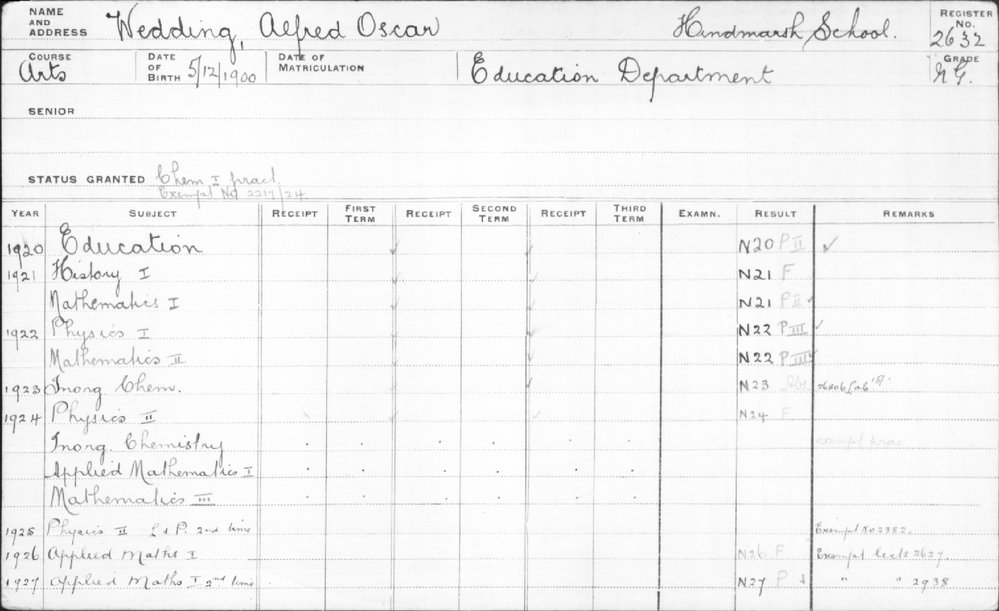 NAME AND ADDRESS Wedding, Alfred Oscar Hindmarsh School. REGISTER No. 2632
COURSE Arts DATE OF BIRTH 5/12/1900 DATE OF MATRICULATION Education Department GRADE N G.
SENIOR
STATUS GRANTED Chem I pract
Exempt No 2217/24
YEAR SUBJECT RECEIPT FIRST TERM RECEIPT SECOND TERM RECEIPT THIRD TERM EXAMN. RESULT REMARKS
1920 Education N20 P II ✓
1921 History I N21 F
Mathematics I N21 P II ✓
1922 Physics I N22 P III ✓
Mathematics II N22 P III ✓
1923 Inorg Chem. N23
1924 Physics II N24 F
Inorg. Chemistry exempt prac
Applied Mathematics I
Mathematics III
1925 Physics II L & P. 2nd time Exempt No 2382.
1926 Applied Maths I N26 F Exempt lects 2627
1927 Applied Maths I 2nd time N27 P " " 2938